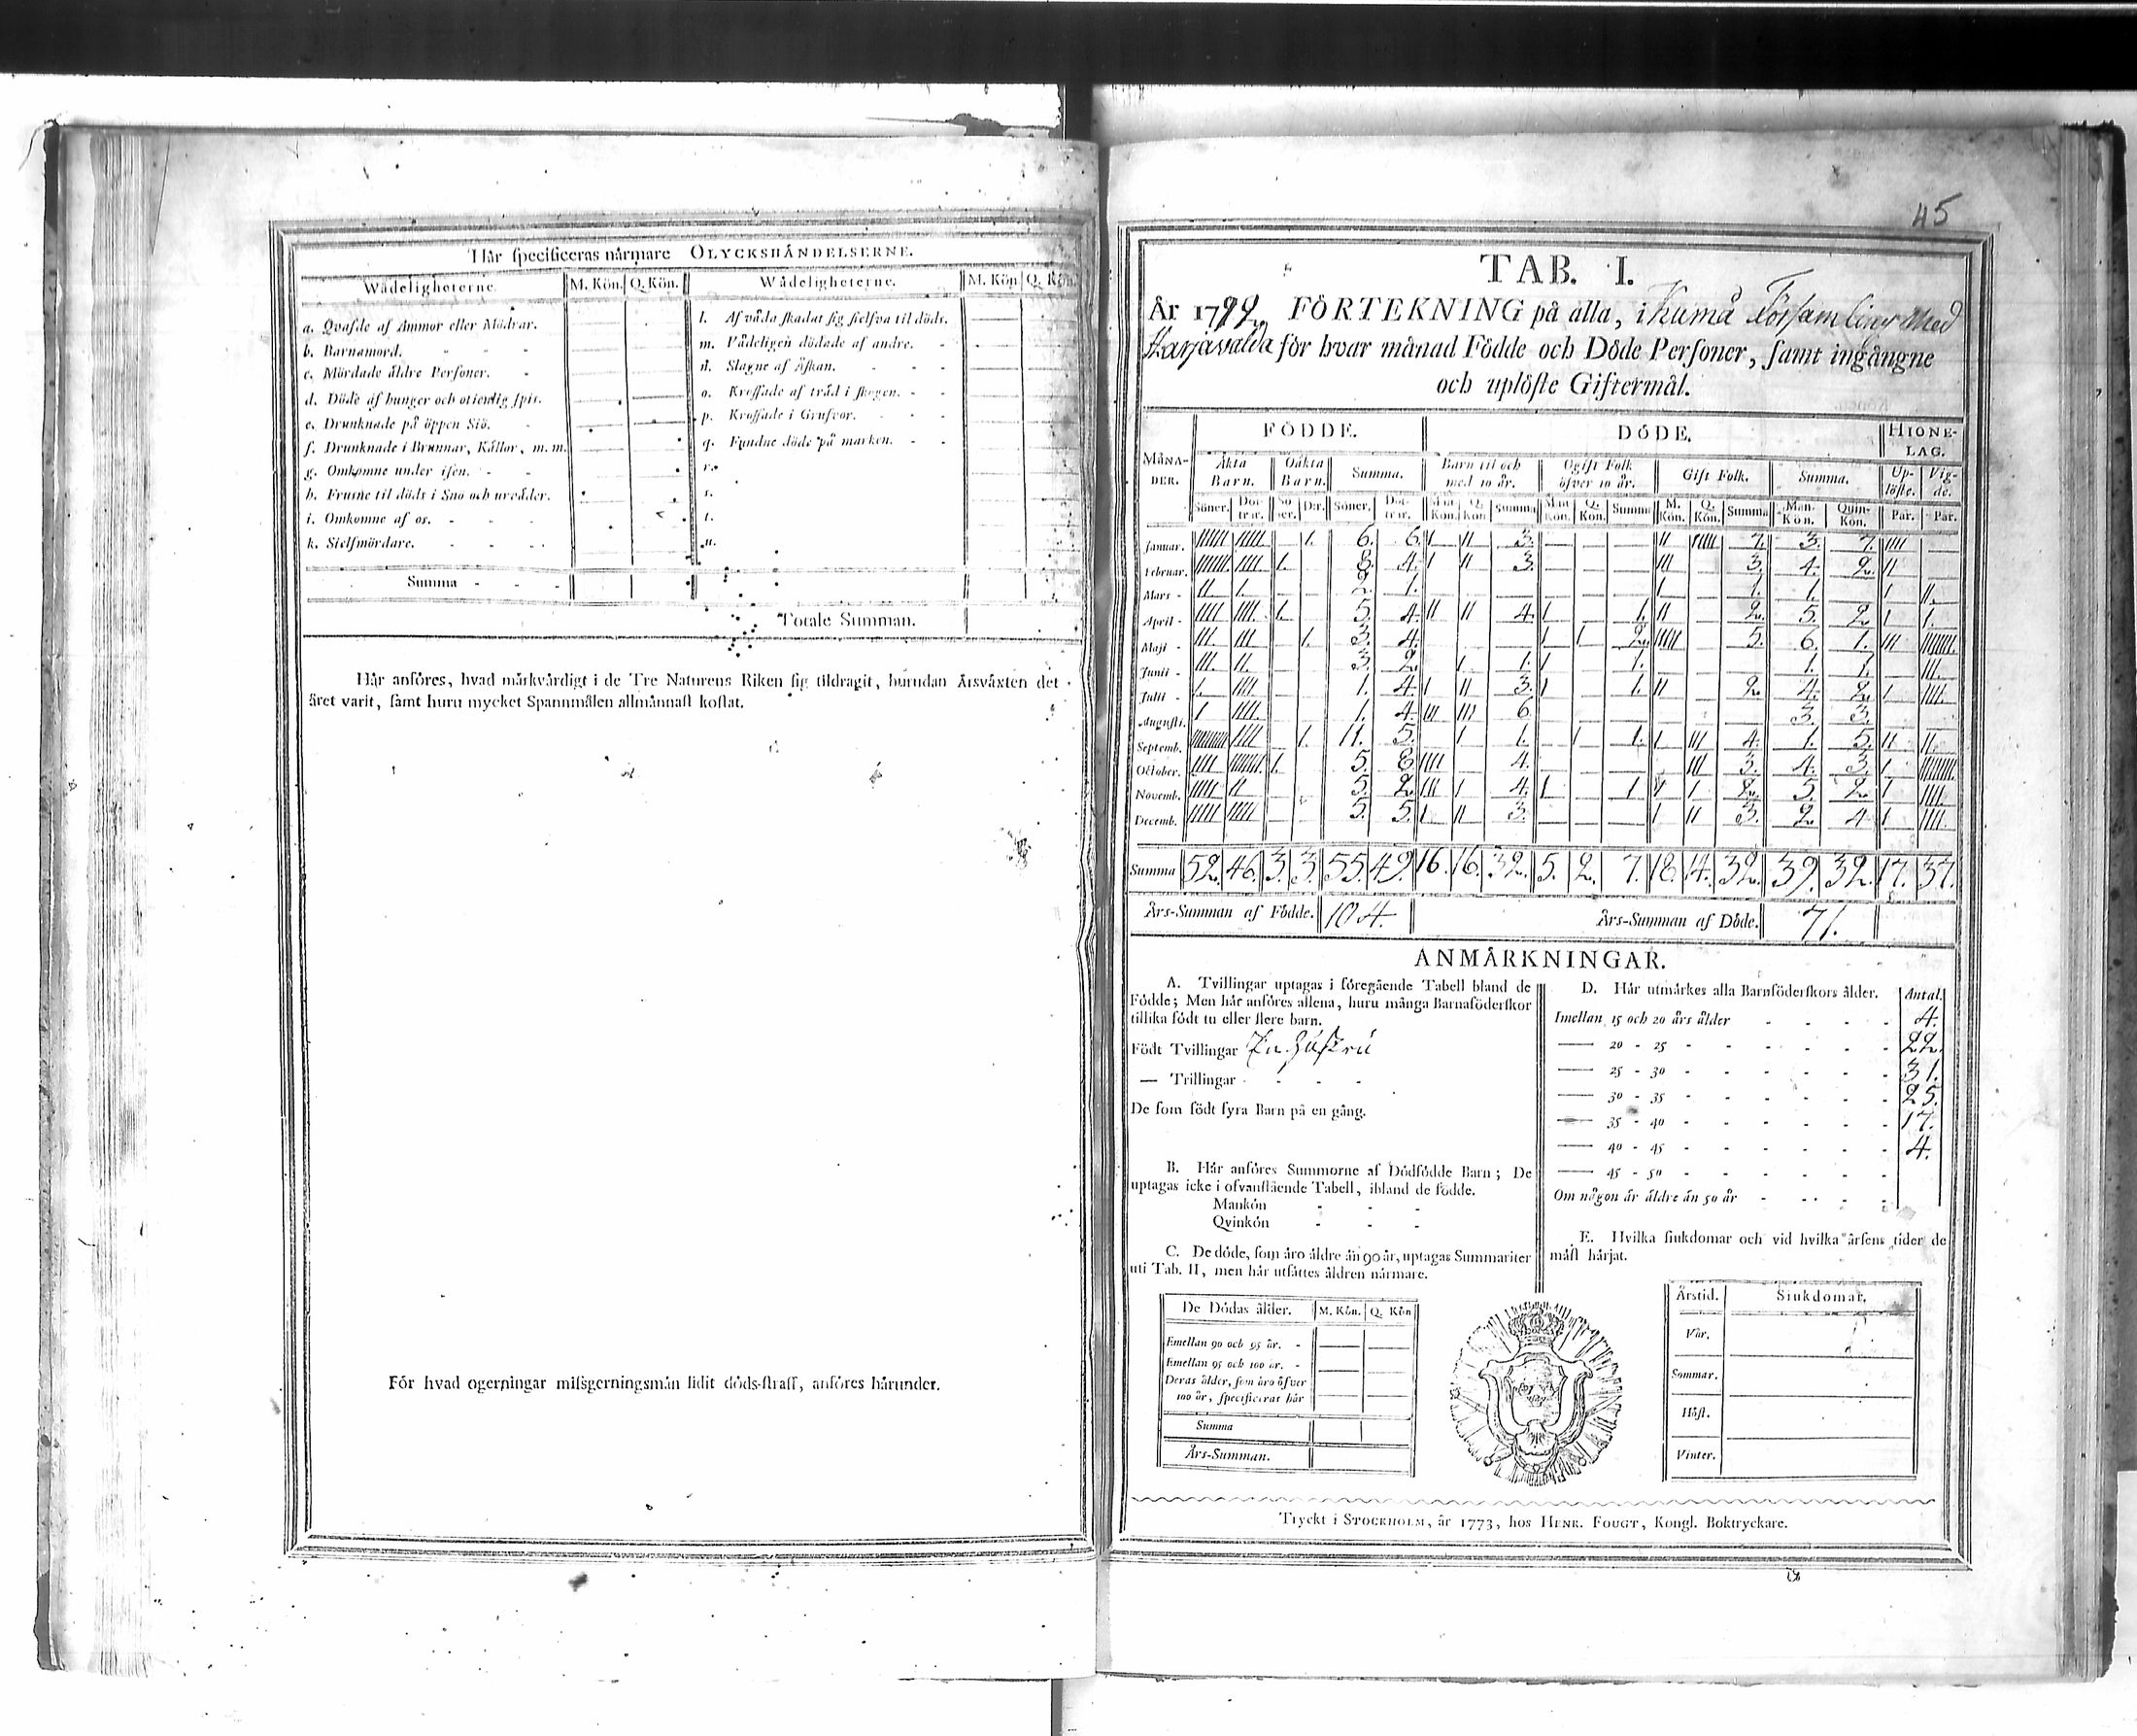 Här specificeras närmare OLYCKSHÄNDELSERNE.
Wådeligheterne. M. Kön. Q. Kön. Wådeligheterne. M. Kön. Q. Kön.
a. Qvafde af Ammor eller Mödrar.
b. Barnamord.
c. Mördade äldre Personer.
d. Döde af hunger och otienlig spis.
e. Drunknade på öppen Siö.
f. Drunknade i Brunnar, Källor, m. m.
g. Omkomne under isen.
h. Frusne til döds i Snö och urväder.
i. Omkomne af os.
k. Sielfmördare.
l. Af våda skadat sig sielfva til döds.
m. Vådeligen dödade af andre.
n. Slagne af Åskan.
o. Krossade af träd i skogen.
p. Krossade i Grufvor.
q. Fundne döde på marken.
r.
s.
t.
u.
Summa
Totale Summan.
Här anföres, hvad märkvärdigt i de Tre Naturens Riken sig tildragit, hurudan Årsväxten det
året varit, samt huru mycket Spannmålen allmännast kostat.
För hvad ogerningar missgerningsmän lidit döds-straff, anföres härunder.
45
TAB. I.
År 1799. FÖRTEKNING på alla, i Kumå Församling Med
Harjavalda för hvar månad Födde och Döde Personer, samt ingångne
och uplöste Giftermål.
MÅNADER. FÖDDE. DÖDE. HIONELAG.
Äkta Barn. Oäkta Barn. Summa. Barn til och med 10 år. Ogift Folk öfver 10 år. Gift Folk. Summa. Uplöste. Vigde.
Söner. Döttrar. Söner. D:r. Söner. Döttrar. Man Kön. Q. Kön Summa Man Kön. Q. Kön. Summa M. Kön. Q. Kön. Summa Man-Kön. Quin-Kön. Par. Par.
Januar. 1. 6. 6. 3. 7. 3. 7.
Februar. 1. 8. 4. 3. 3. 4. 2.
Mars 2. 1. 1. 1.
April 1. 5. 4. 4. 1. 2. 5. 2
Maji 1. 3. 4. 2. 5. 6. 1.
Junii 3. 2. 1. 1. 1. 1.
Julii 1. 4. 3. 1. 2. 4. 2.
Augusti. 1. 4. 6. 3. 3.
Septemb. 1. 11. 5. 1. 1. 4. 1. 5.
October. 1. 5. 8 4. 3. 4. 3.
Novemb. 5. 2. 4. 1 2. 5. 2.
Decemb. 5. 5. 3. 3. 2 4
Summa 52. 46. 3. 3. 55. 49. 16. 16. 32. 5. 2. 7. 18. 14. 32. 39. 32. 17. 37.
Års-Summan af Födde. 104. Års-Summan af Döde. 71.
ANMÄRKNINGAR.
A. Tvillingar uptagas i föregående Tabell bland de
Födde; Men här anföres allena, huru många Barnaföderskor
tillika födt tu eller flere barn.
Födt Tvillingar En Hustru
— Trillingar
De som födt fyra Barn på en gång.
B. Här anföres Summorne af Dödfödde Barn; De
uptagas icke i ofvanstående Tabell, ibland de födde.
Mankön
Qvinkön
C. De döde, som äro äldre än 90 år, uptagas Summariter
uti Tab. II, men här utsättes åldren närmare.
De Dödas ålder. M. Kön. Q. Kön
Emellan 90 och 95 år.
Emellan 95 och 100 år.
Deras ålder, som äro öfver
100 år, specificeras här
Summa
Års-Summan.
D. Här utmärkes alla Barnföderskors ålder. Antal.
Imellan 15 och 20 års ålder 4.
20 - 25 22.
25 - 30 31.
30 - 35 25.
35 - 40 17.
40 - 45 4.
45 - 50
Om någon är äldre än 50 år
E. Hvilka siukdomar och vid hvilka årsens tider de
mäst härjat.
Årstid. Siukdomar.
Vår.
Sommar.
Höst.
Vinter.
Tryckt i STOCKHOLM, år 1773, hos HENR. FOUGT, Kongl. Boktryckare.